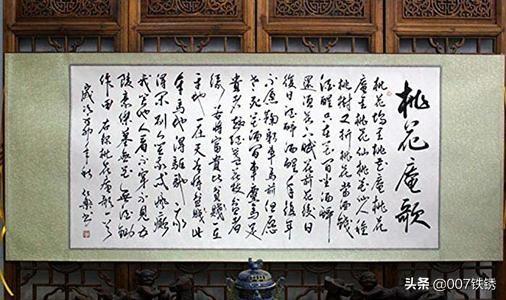 桃花庵歌
桃花坞里桃花庵桃花
庵里桃花仙桃花仙人种
桃树又折桃花当酒钱
酒醒只在花前坐酒醉
还须花下眠花前花后日
复日酒醉酒醒年复年
不愿鞠躬车马前但愿
老死花酒间车尘马足
贵者趣酒盏花枝贫者
缘若将富贵比贫贱一在
平地一在天若将贫贱比
车马他得驱驰我
得闲别人笑我忒疯癫
我笑他人看不穿不见五
陵豪杰墓无花无酒锄
作田 右录桃花庵歌一首
年秋 书
头条 @007铁锈